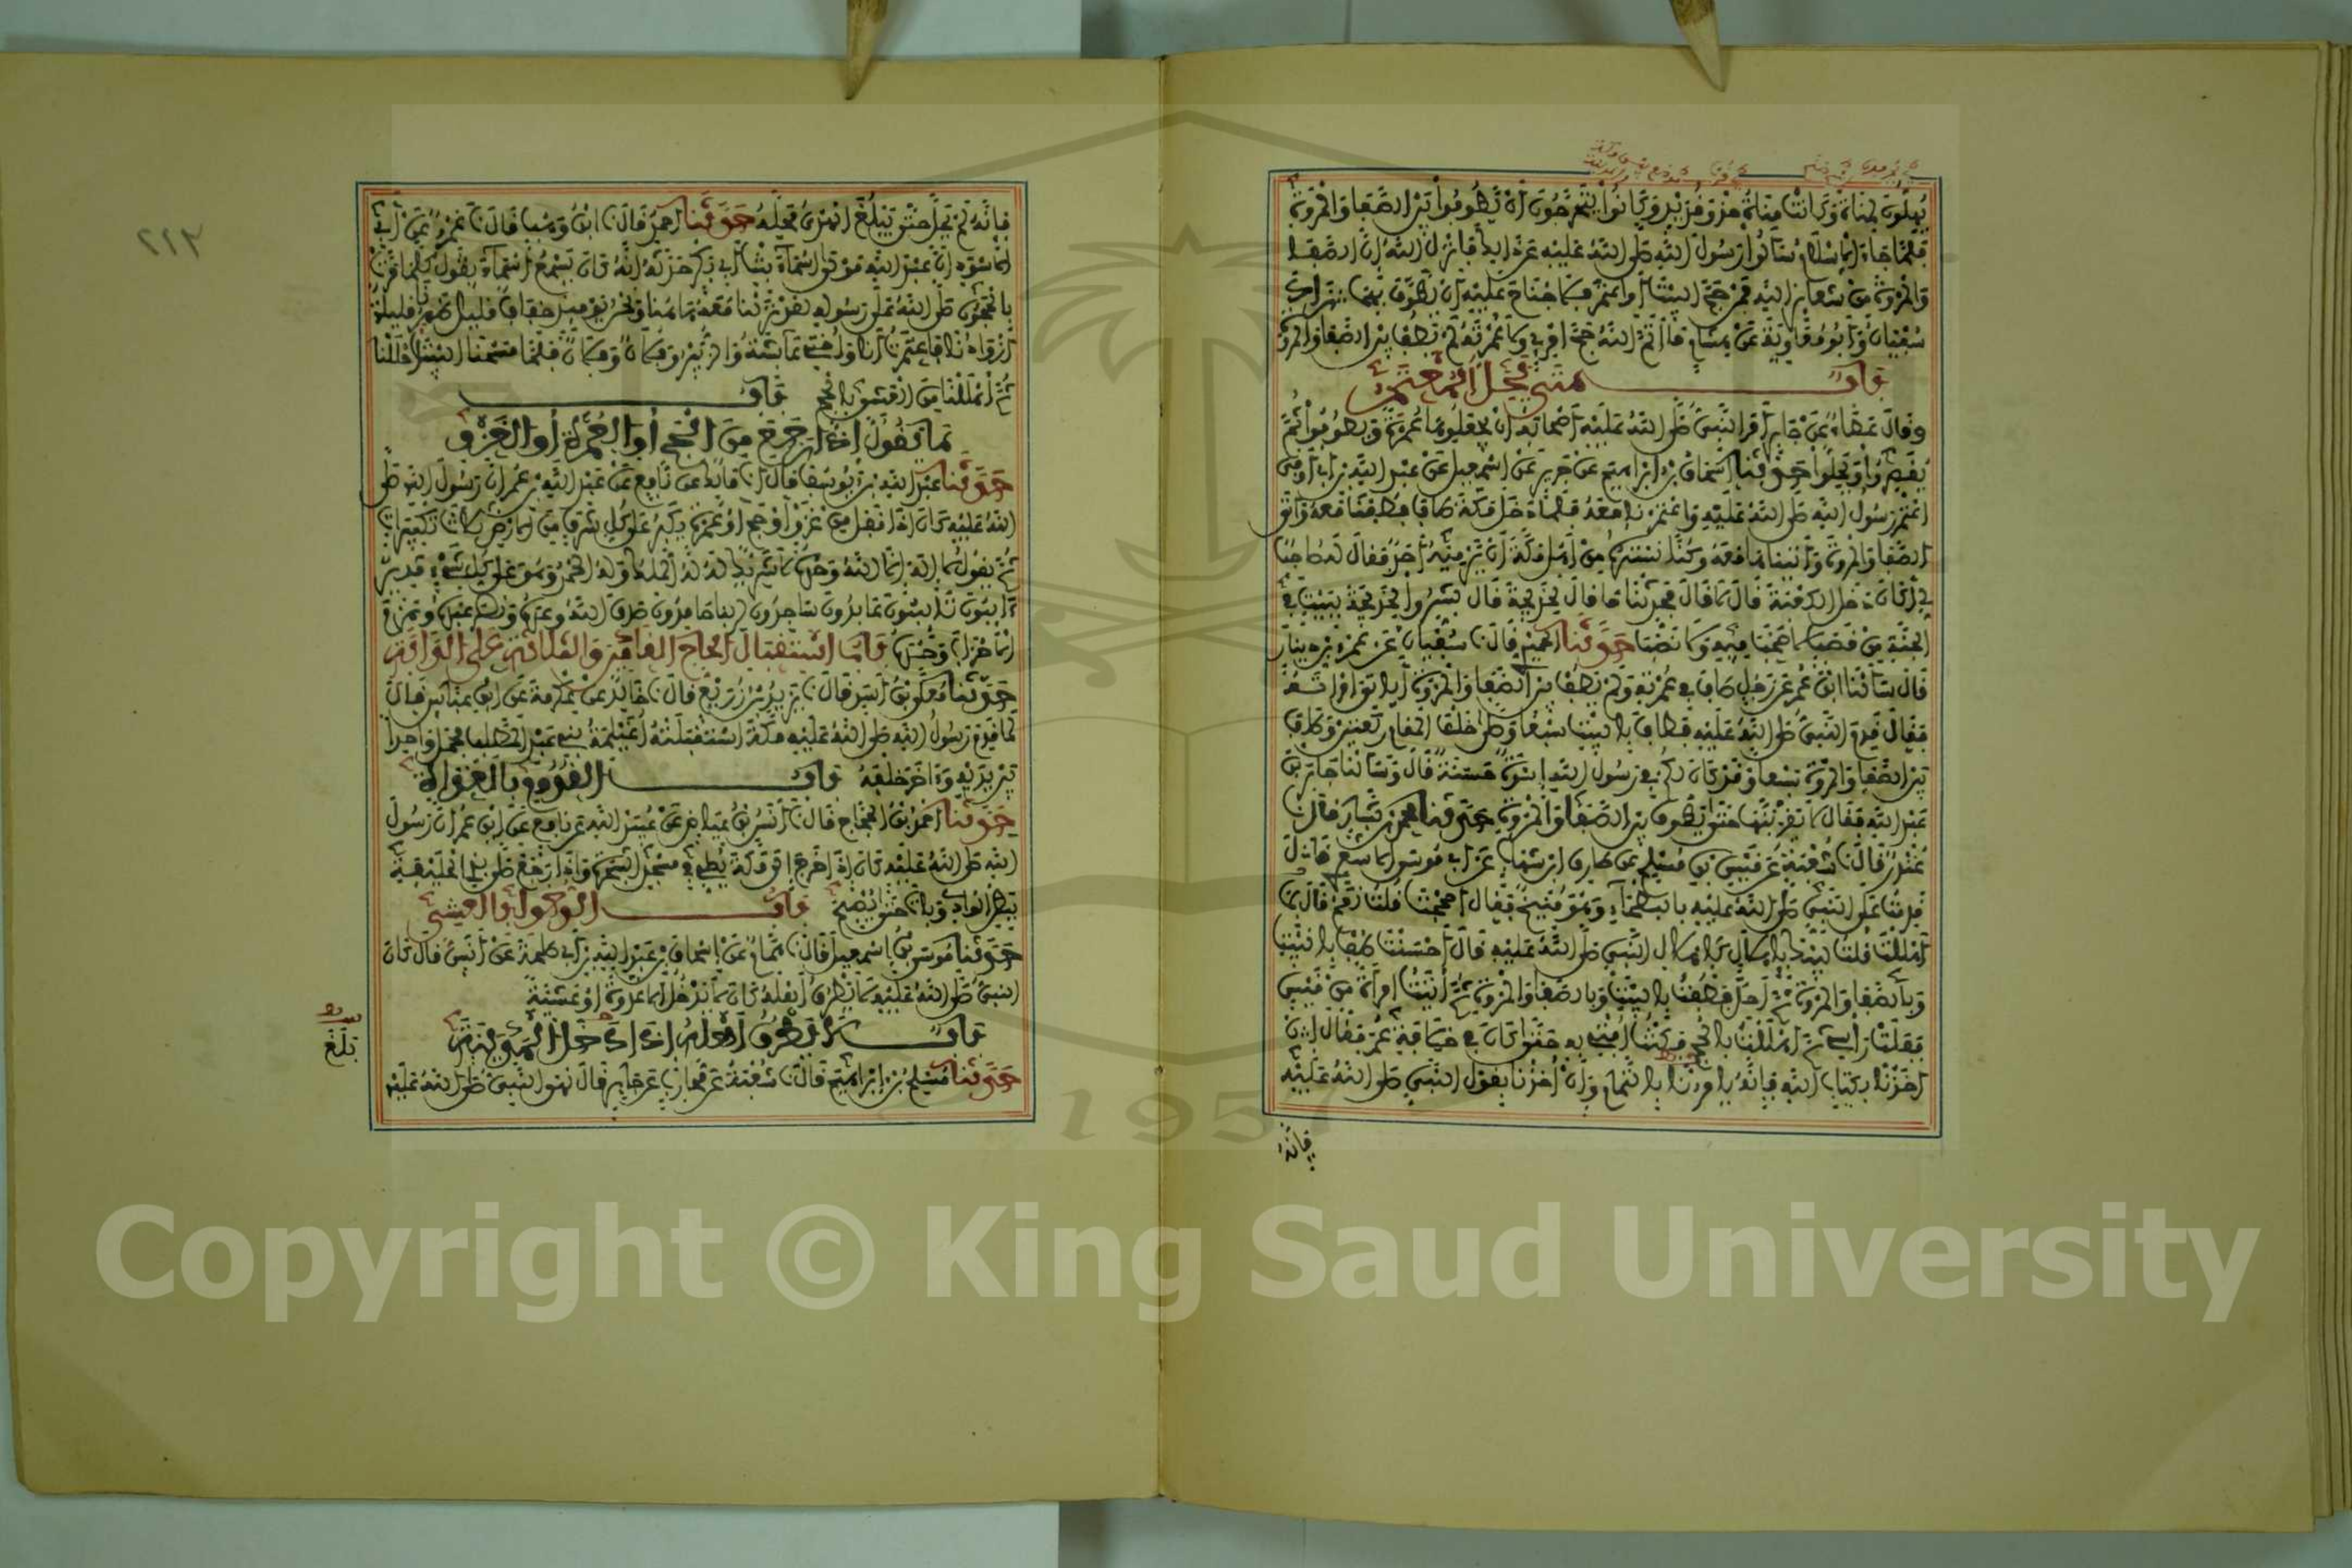 يهلون لمناة وكانت مناة حذو قديد وكانوا يتحرجون أن يطوفوا بين الصفا والمروة
فلما جاء الإسلام سألوا رسول الله صلى الله عليه عن ذلك فأنزل الله إن الصفا
والمروة من شعائر الله فمن حج البيت أو اعتمر فلا جناح عليه أن يطوف بهما زاد
سفيان وأبو معاوية عن هشام ما أتم الله حج امرئ ولا عمرته لم يطف بين الصفا والمروة
باب متى يحل المعتمر
وقال عطاء عن جابر أمر النبي صلى الله عليه أصحابه أن يجعلوها عمرة ويطوفوا ثم
يقصروا ويحلوا حدثنا إسحاق بن إبراهيم عن جرير عن إسمعيل عن عبد الله بن أبي أوفى
اعتمر رسول الله صلى الله عليه واعتمرنا معه فلما دخل مكة طاف فطفنا معه وأتى
الصفا والمروة وأتيناها معه وكنا نستره من أهل مكة أن يرميه أحد فقال له صاحب
لي أكان دخل الكعبة قال لا قال فحدثنا ما قال لخديجة قال بشروا خديجة ببيت في
الجنة من قصب لا صخب فيه ولا نصب حدثنا الحميدي قال نا سفيان عن عمرو بن دينار
قال سألنا ابن عمر عن رجل طاف في عمرته ولم يطف بين الصفا والمروة أيأتي امرأته
فقال قدم النبي صلى الله عليه فطاف بالبيت سبعا وصلى خلف المقام ركعتين وطاف
بين الصفا والمروة سبعا وقد كان لكم في رسول الله إسوة حسنة قال وسألنا جابر بن
عبد الله فقال لا يقربنها حتى يطوف بين الصفا والمروة حدثنا محمد بن بشار قال نا
غندر قال نا شعبة عن قيس بن مسلم عن طارق بن شهاب عن أبي موسى الأشعري قال
قدمت على النبي صلى الله عليه بالبطحاء وهو منيخ فقال أحججت قلت نعم قال بما
أهللت قلت لبيك بإهلال كإهلال النبي صلى الله عليه قال أحسنت طف بالبيت
وبالصفا والمروة ثم أحل فطفت بالبيت وبالصفا والمروة ثم أتيت امرأة من قيس
ففلت رأسي ثم أهللت بالحج فكنت أفتي به حتى كان في خلافة عمر فقال إن
أخذنا بكتاب الله فإنه يأمرنا بالتمام وإن أخذنا بقول النبي صلى الله عليه
فإنه
٢١٣
فإنه لم يحل حتى يبلغ الهدي محله حدثنا أحمد قال نا ابن وهب قال نا عمرو عن أبي
الأسود أن عبد الله مولى أسماء بنت أبي بكر حدثه أنه كان يسمع أسماء تقول كلما مرت
بالحجون صلى الله على رسوله لقد نزلنا معه هاهنا ونحن يومئذ خفاف قليل ظهرنا قليلة
أزوادنا فاعتمرت أنا وأختي عائشة والزبير وفلان وفلان فلما مسحنا البيت أحللنا
ثم أهللنا من العشي بالحج باب
ما يقول إذا رجع من الحج أو العمرة أو الغزو
حدثنا عبد الله بن يوسف قال أنا مالك عن نافع عن عبد الله بن عمر أن رسول الله صلى
الله عليه كان إذا قفل من غزو أو حج أو عمرة يكبر على كل شرف من الأرض ثلاث تكبيرات
ثم يقول لا إله إلا الله وحده لا شريك له له الملك وله الحمد وهو على كل شيء قدير
آئبون تائبون عابدون ساجدون لربنا حامدون صدق الله وعده ونصر عبده وهزم
الأحزاب وحده باب استقبال الحاج القادمين والثلاثة على الدابة
حدثنا معلى بن أسد قال نا يزيد بن زريع قال نا خالد عن عكرمة عن ابن عباس قال
لما قدم رسول الله صلى الله عليه مكة استقبلته أغيلمة بني عبد المطلب فحمل واحدا
بين يديه وآخر خلفه باب القدوم بالغداة
حدثنا أحمد بن الحجاج قال نا أنس بن عياض عن عبيد الله عن نافع عن ابن عمر أن رسول
الله صلى الله عليه كان إذا خرج إلى مكة يصلي في مسجد الشجرة وإذا رجع صلى بذي الحليفة
ببطن الوادي وبات حتى يصبح باب الدخول بالعشي
حدثنا موسى بن إسمعيل قال نا همام عن إسحاق بن عبد الله بن أبي طلحة عن أنس قال كان
النبي صلى الله عليه لا يطرق أهله كان لا يدخل إلا غدوة أو عشية
باب لا يطرق أهله إذا دخل المدينة
حدثنا مسلم بن إبراهيم قال نا شعبة عن محارب عن جابر قال نهى النبي صلى الله عليه
بلغ
Copyright © King Saud University
1957